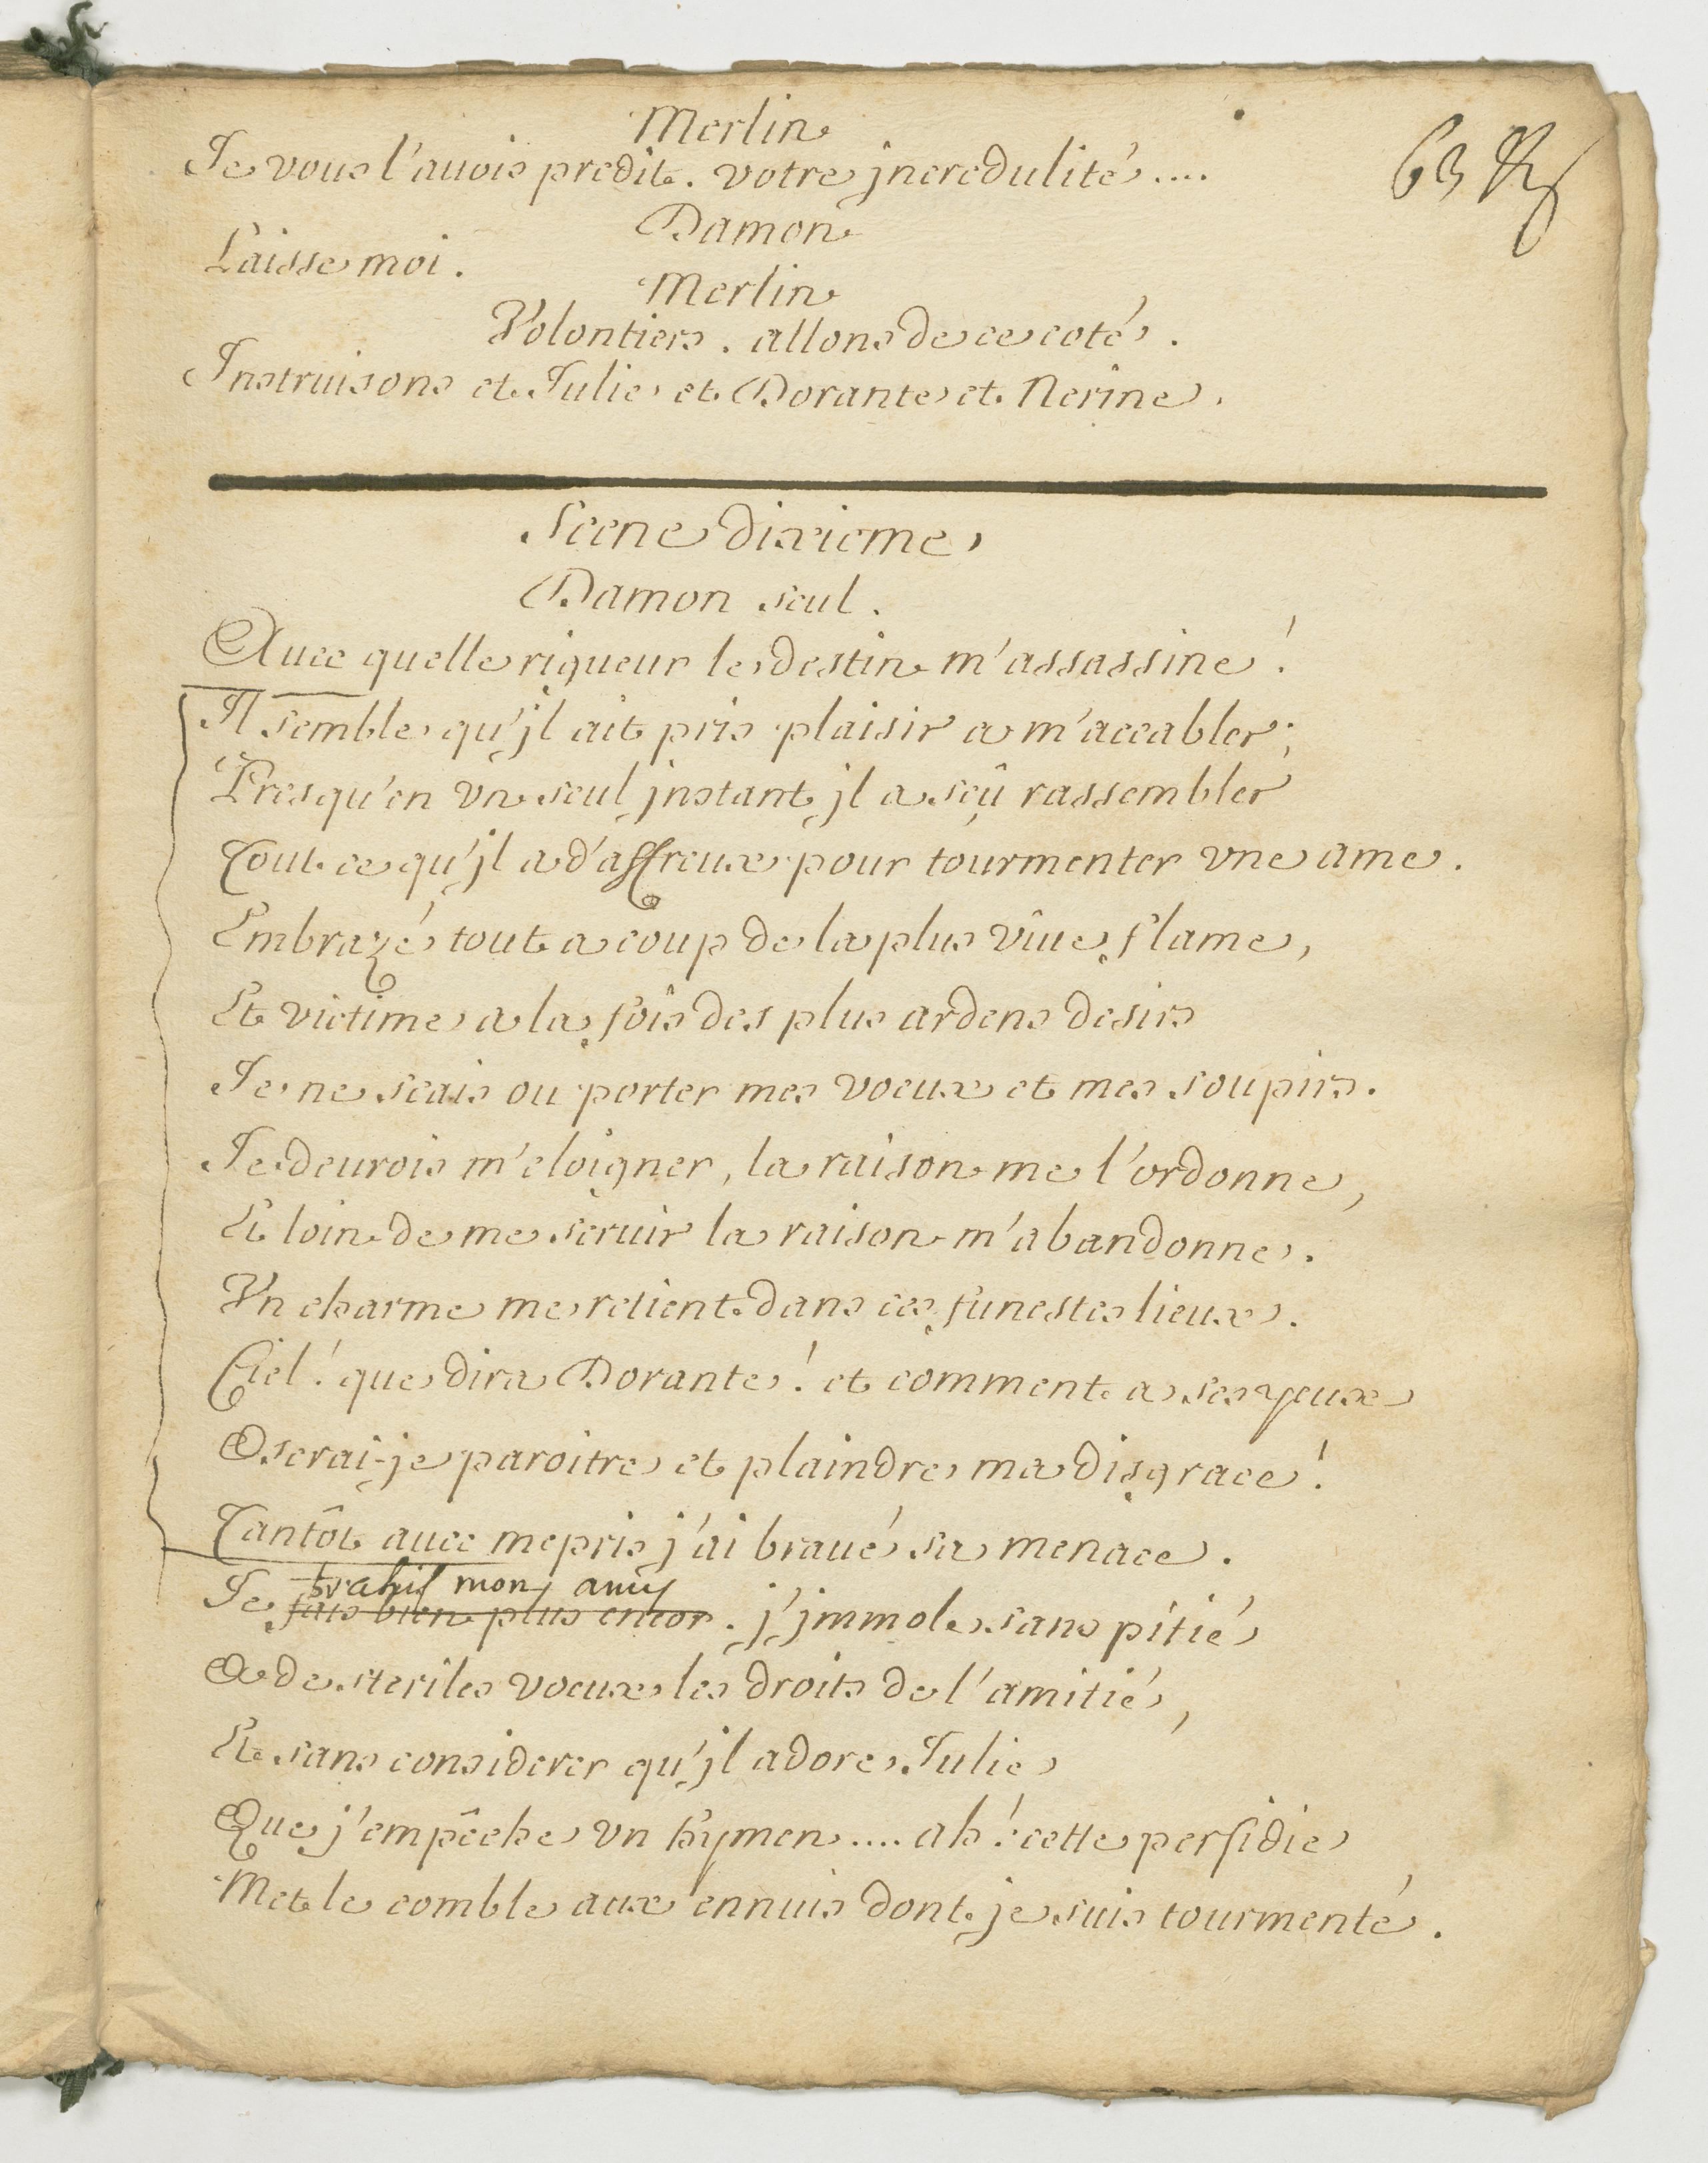 Merlin
Je vous l'auois predit. votre jncredulité....
63
Damon
Laisse moi.
Merlin
Volontiers. allons de ce coté.
Instruisons et Julie et Dorante et Nerine.
Scene dixieme
Damon seul.
Auec quelle rigueur le destin m'assassine!
Il semble qu'jl ait pris plaisir a m'accabler;
Presqu'en vn seul jnstant jl a sçû rassembler
Tout ce qu'jl a d'affreux pour tourmenter vne ame.
Embrazé tout a coup de la plus viue flame,
Et victime a la fois des plus ardens desirs
Je ne scais ou porter mes voeux et mes soupirs.
Je deurois m'eloigner, la raison me l'ordonne,
Et loin de me seruir la raison m'abandonne.
Vn charme me retient dans ces funestes lieux.
Ciel! que dira Dorante! et comment a ses yeux
Oserai-je paroitre et plaindre ma disgrace!
Tantôt auec mepris j'ai braué sa menace.
trahis mon amy
Je fais bien plus encor. j'jmmole sans pitié
A de steriles voeux les droits de l'amitié,
Et sans considerer qu'jl adore Julie
Que j'empêche vn hymen.... ah! cette perfidie
Met le comble aux ennuis dont je suis tourmenté.